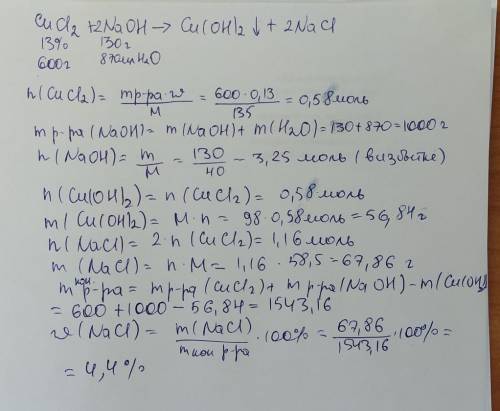 CuCl2 + 2NaOH → Cu(OH)2 ↓ + 2NaCl
13% 130г
600г 870мл H2O
n(CuCl2) = mр-ра·w/M = 600·0,13/135 = 0,58моль
mр-ра(NaOH) = m(NaOH) + m(H2O) = 130 + 870 = 1000г
n(NaOH) = m/M = 130/40 - 3,25 моль (в избытке)
n(Cu(OH)2) = n(CuCl2) = 0,58 моль
m(Cu(OH)2) = M·n = 98·0,58моль = 56,84г
n(NaCl) = 2·n(CuCl2) = 1,16 моль
m(NaCl) = n·M = 1,16·58,5 = 67,86 г
mкон р-ра = mр-ра(CuCl2) + mр-ра(NaOH) - m(Cu(OH)2
= 600 + 1000 - 56,84 = 1543,16
w(NaCl) = m(NaCl)/mкон р-ра ·100% = 67,86/1543,16 ·100% =
= 4,4%